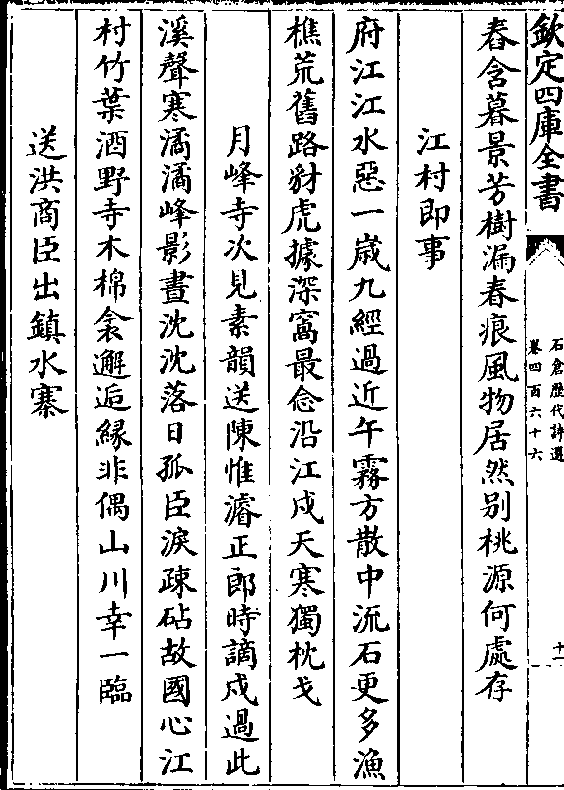 欽定四庫全書
石倉歴代詩選
卷四百六十六
十一
舂含暮景芳樹漏春痕風物居然别桃源何處存
江村即事
府江江水惡一嵗九經過近午霧方散中流石更多漁
樵荒舊路豺虎據深窩最念沿江戍天寒獨枕戈
月峰寺次見素韻送陳惟濬正郎時謫戍過此
溪聲寒潏潏峰影晝沈沈落日孤臣淚疎砧故國心江
村竹葉酒野寺木棉衾邂逅縁非偶山川幸一臨
送洪商臣出鎮水寨